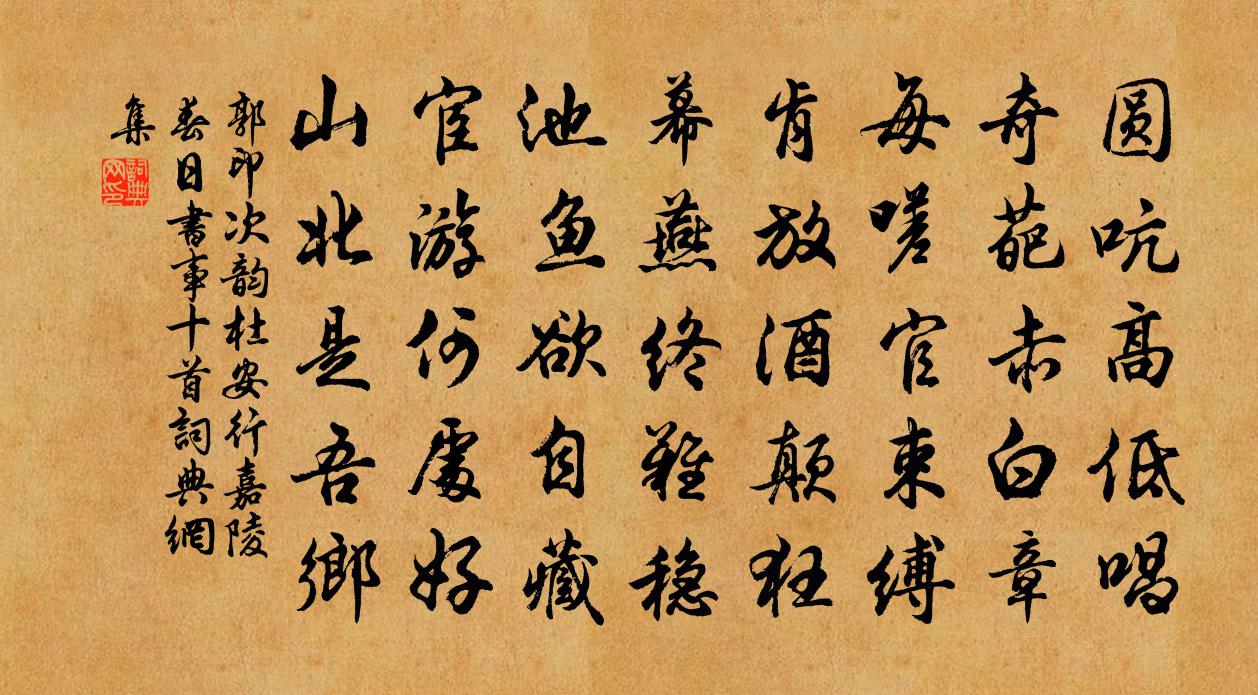 圆吭高低唱
奇葩赤白章
每嗟官束缚
肯放酒颠狂
幕燕终难稳
池鱼欲自藏
宦游何处好
山北是吾乡
郭印次韵杜安行嘉陵
春日书事十首詞典網
集
詞典
网印